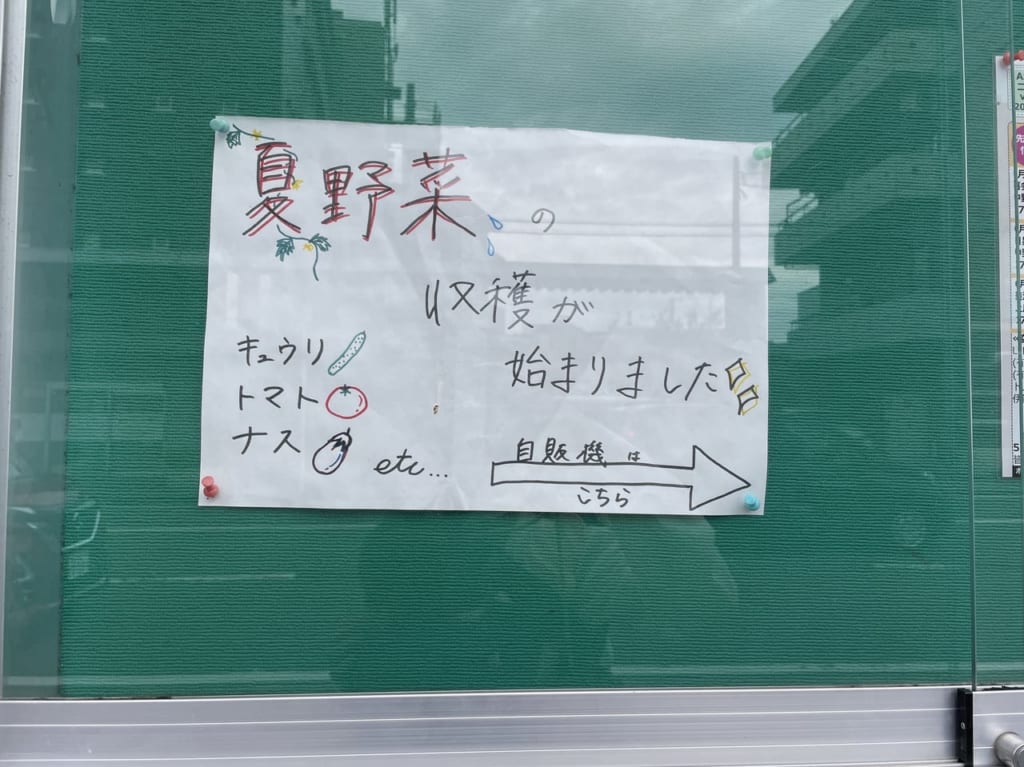 夏野菜の
収穫が
始まりました
キュウリ
トマト
ナス
etc...
自販機は
こちら